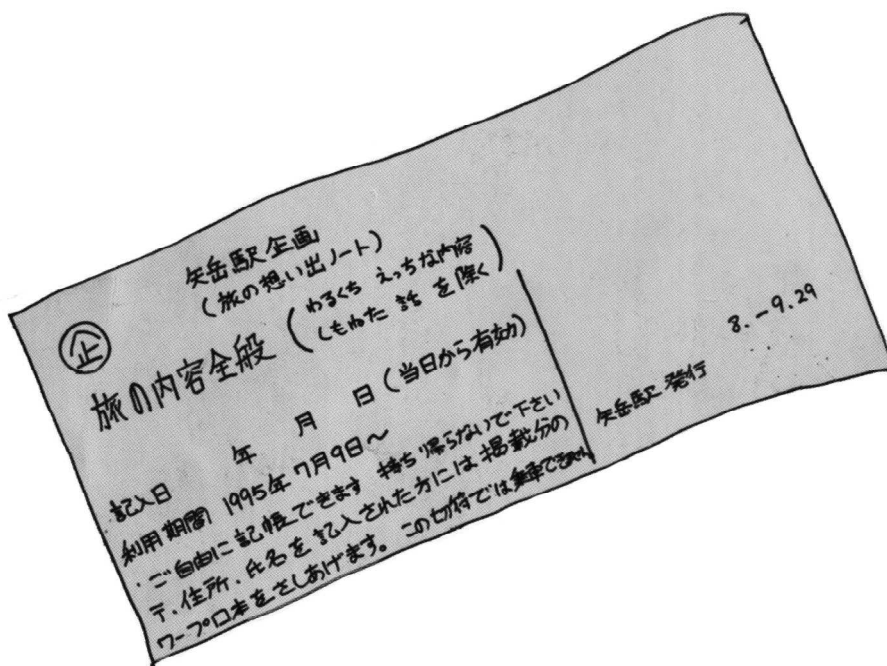 矢岳駅企画
(旅の想い出ノート)
企
旅の内容全般
(わるくち えっちな内容
しもねた 話 を除く)
年 月 日(当日から有効)
記入日
利用期間 1995年7月9日~
・ご自由に記帳できます 持ち帰らないで下さい
〒.住所.氏名を記入された方には掲載分の
ワープロ本をさしあげます。この切符では乗車できません
8.-9.29
矢岳駅 発行